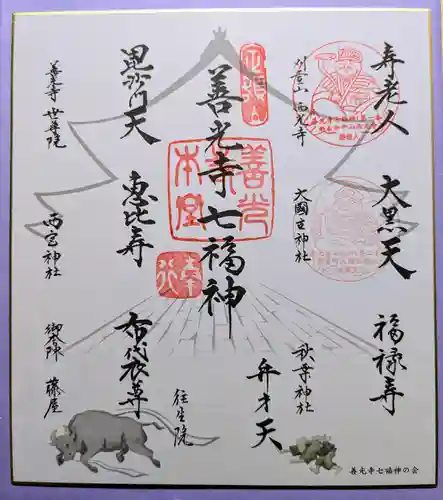 寿老人
刈萱山 西光寺
大黒天
大國主神社
福禄寿
秋葉神社
弁才天
往生院
善光寺七福神
善光
寺
本堂
毘沙門天
善光寺 世尊院
恵比寿
西宮神社
布袋尊
御本陣 藤屋
善光寺七福神の会